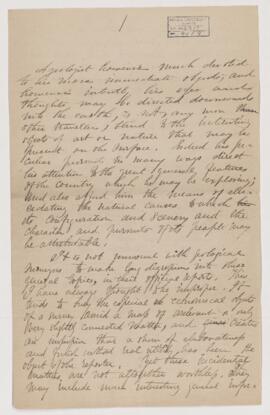 1
A geologist however much devoted
to his more immediate objects, and
however intently his eyes and
thoughts, may be directed downwards
into the earth, is not any more than
other travellers, blind to the
objects of art or nature that may be
present on the surface. Indeed his pe-
culiar pursuits in many ways direct
his attention to the great general features
of the country which he may be exploring;
and also afford him the means of elu-
cidating the natural causes to which
its configuration and scenery and the
character and pursuits of its people may
be attributable.
It is not universal with geological
surveys to make long digressions into these
general topics in their official reports. This
I have always thought improper. It
tends to bury the special or technical objects
of a survey amid a mass of irrelevant or only
very slightly connected matter, and creates
an suspicion that a show of elaborateness
and not real utility, has been the
object of the reporter. Yet these incidental
matters are not altogether worthless. They
may include much interesting general infor-